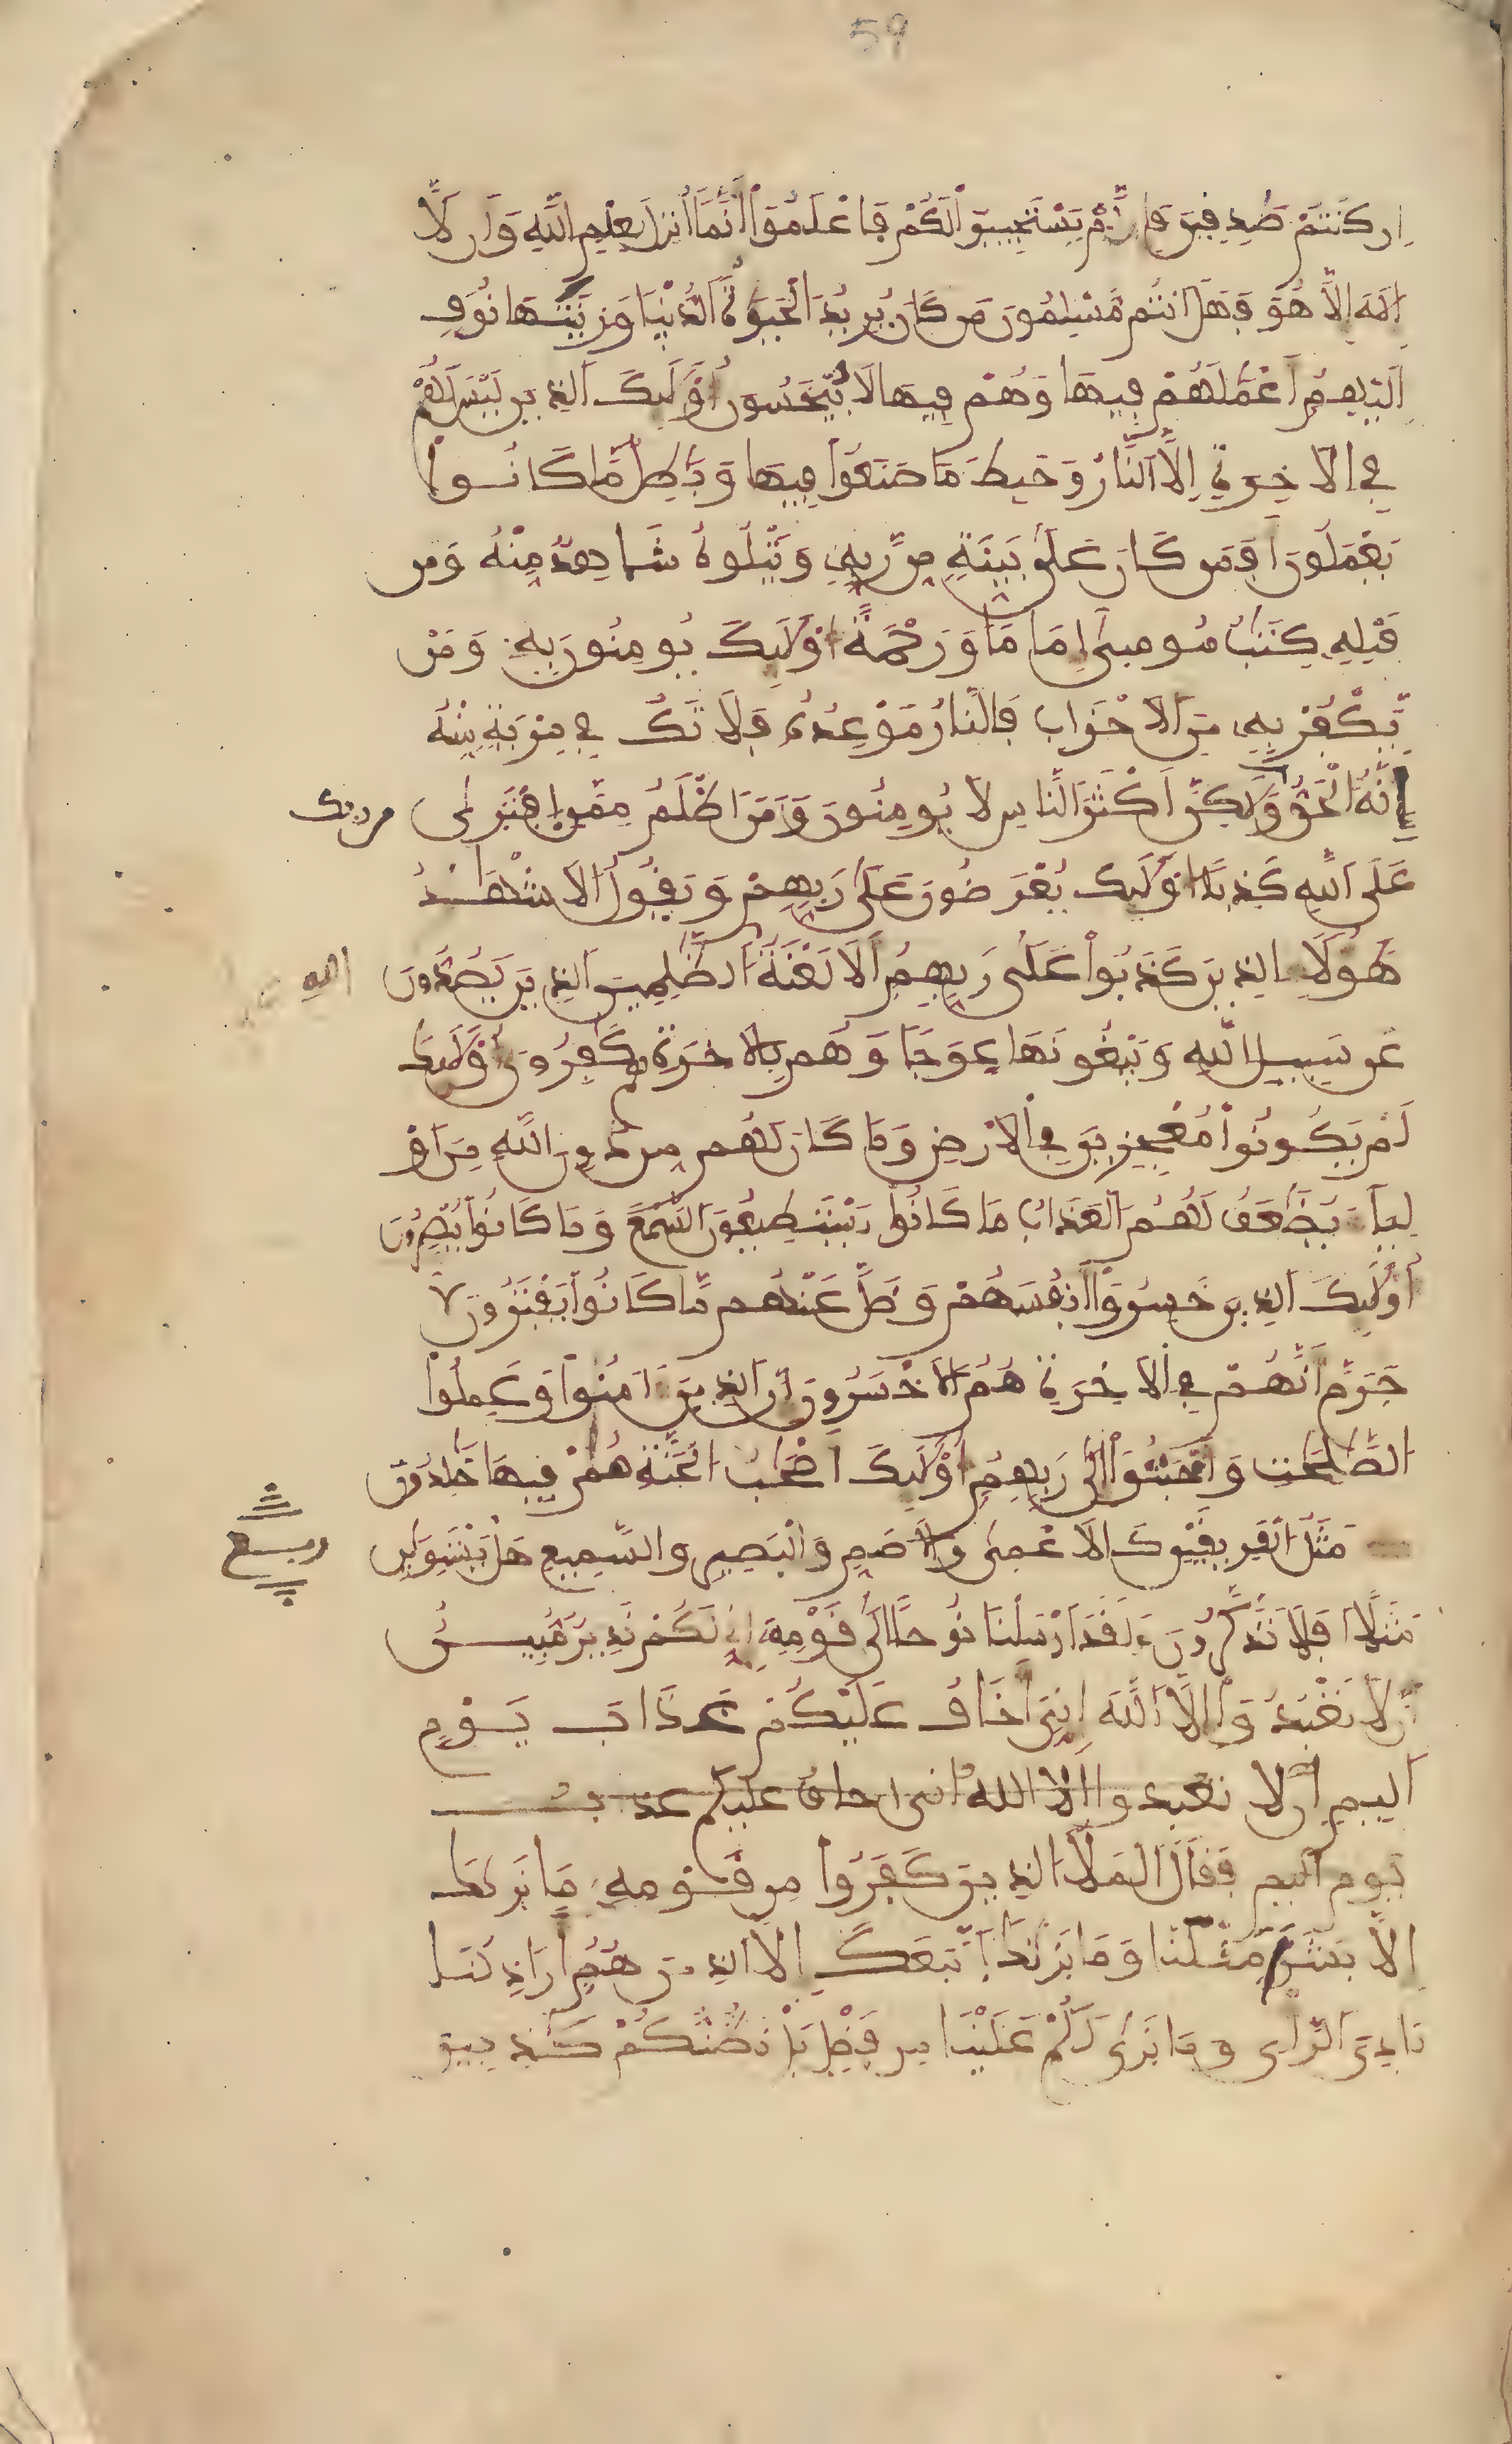 59
إن كنتم صدقين فإلم يستجيبوا لكم فاعلموا أنما أنزل بعلم الله وأن لا
إله إلا هو فهل أنتم مسلمون من كان يريد الحيوة الدنيا وزينتها نوف
إليهم أعملهم فيها وهم فيها لا يبخسون أولئك الذين ليس لهم
في الاخرة إلا النار وحبط ما صنعوا فيها وبطل ما كانوا
يعملون أفمن كان على بينة من ربه ويتلوه شاهد منه ومن
قبله كتب موسى إماما ورحمة أولئك يومنون به ومن
يكفر به من الاحزاب فالنار موعده فلا تك في مرية منه
إنه الحق ولكن أكثر الناس لا يومنون ومن أظلم ممن افترى
من ربك
على الله كذبا أولئك يعرضون على ربهم ويقول الاشهد
هولاء الذين كذبوا على ربهم ألا لعنة الظلمين الذين يصدون
الله
عن سبيل الله ويبغونها عوجا وهم بالاخرة هم كفرون أولئك
لم يكونوا معجزين في الارض وما كان لهم من دون الله من أو
لياء يضعف لهم العذاب ما كانوا يستطيعون السمع وما كانوا يبصرون
أولئك الذين خسروا أنفسهم وضل عنهم ما كانوا يفترون لا
جرم أنهم في الاخرة هم الاخسرون إن الذين ءامنوا وعملوا
الصلحت وأخبتوا إلى ربهم أولئك أصحب الجنة هم فيها خلدون
مثل الفريقين كالاعمى والاصم والبصير والسميع هل يستوين
ربع
مثلا أفلا تذكرون ولقد أرسلنا نوحا إلى قومه إني لكم نذير مبين
أن لا تعبدوا إلا الله إني أخاف عليكم عذاب يوم
أليم أن لا تعبدوا إلا الله اني اخاف عليكم عذاب
يوم أليم فقال الملأ الذين كفروا من قومه ما نريك
إلا بشرا مثلنا وما نريك اتبعك إلا الذين هم أراذلنا
بادي الرأي وما نرى لكم علينا من فضل بل نظنكم كذبين